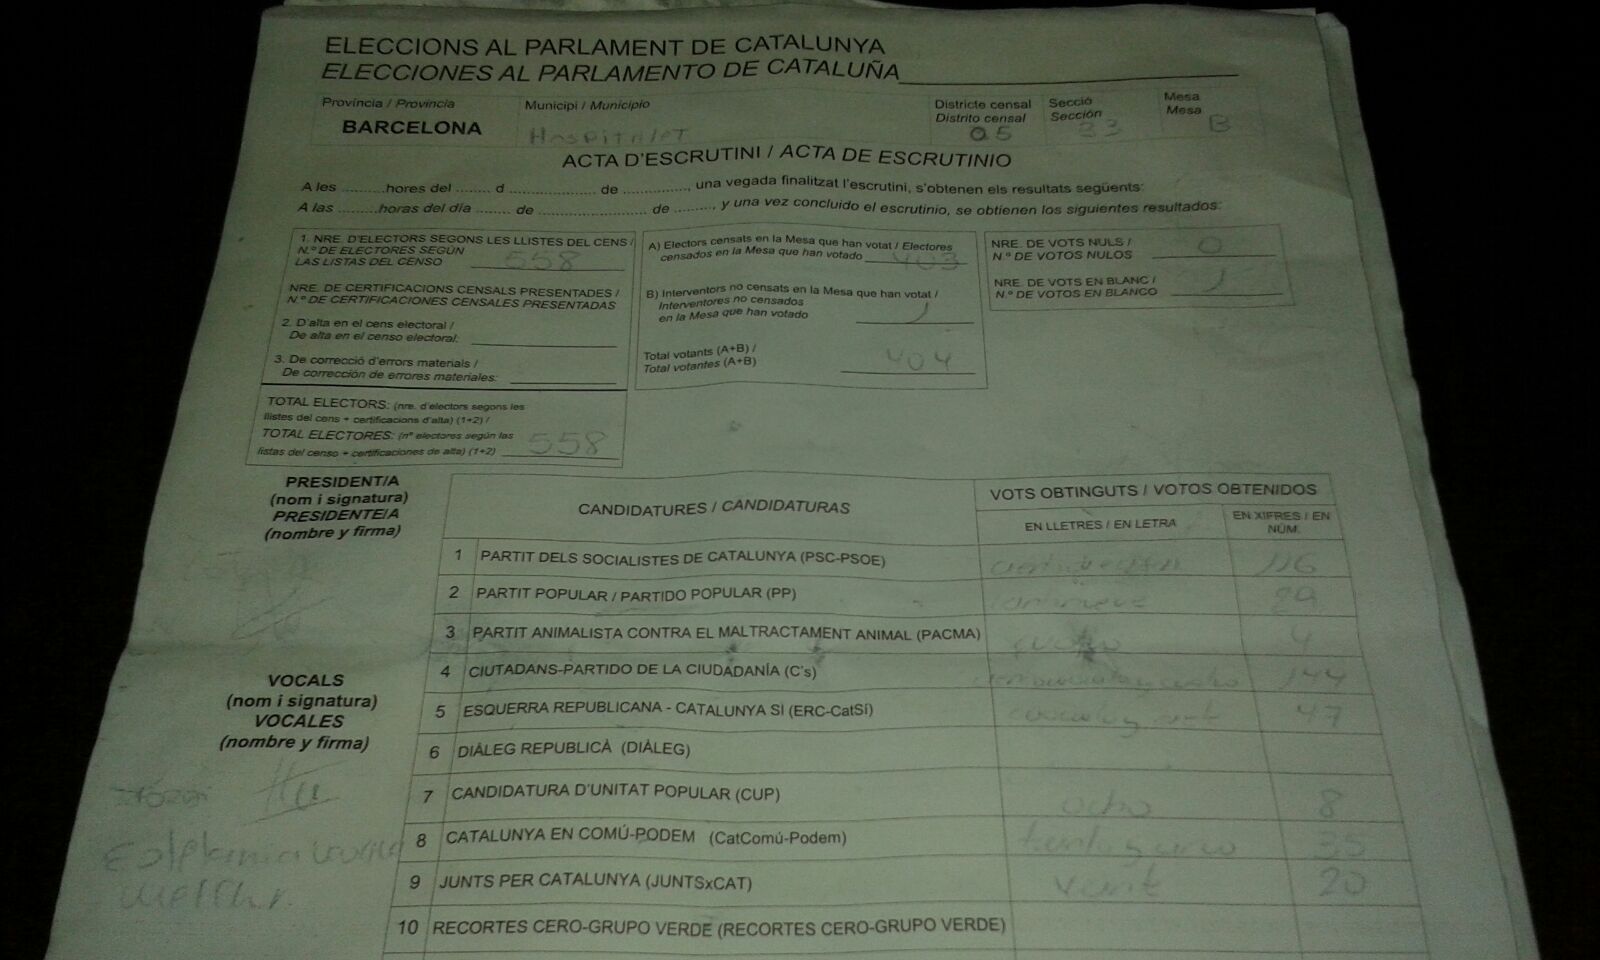 ELECCIONS AL PARLAMENT DE CATALUNYA
ELECCIONES AL PARLAMENTO DE CATALUÑA
Província / Provincia
BARCELONA
Municipi / Municipio
Hospitalet
Districte censal
Distrito censal
05
Secció
Sección
33
Mesa
Mesa
B
ACTA D'ESCRUTINI / ACTA DE ESCRUTINIO
A les ..........hores del ........ d .................... de ..............., una vegada finalitzat l'escrutini, s'obtenen els resultats següents:
A las ..........horas del día ........ de ......................... de ........., y una vez concluido el escrutinio, se obtienen los siguientes resultados:
1. NRE. D'ELECTORS SEGONS LES LLISTES DEL CENS /
N.º DE ELECTORES SEGÚN
LAS LISTAS DEL CENSO 558
NRE. DE CERTIFICACIONS CENSALS PRESENTADES /
N.º DE CERTIFICACIONES CENSALES PRESENTADAS
2. D'alta en el cens electoral /
De alta en el censo electoral:
3. De correcció d'errors materials /
De corrección de errores materiales:
TOTAL ELECTORS: (nre. d'electors segons les
llistes del cens + certificacions d'alta) (1+2) /
TOTAL ELECTORES: (nº electores según las
listas del censo + certificaciones de alta) (1+2) 558
A) Electors censats en la Mesa que han votat / Electores
censados en la Mesa que han votado 403
B) Interventors no censats en la Mesa que han votat /
Interventores no censados
en la Mesa que han votado 1
Total votants (A+B) /
Total votantes (A+B) 404
NRE. DE VOTS NULS /
N.º DE VOTOS NULOS 0
NRE. DE VOTS EN BLANC /
N.º DE VOTOS EN BLANCO 1
PRESIDENT/A
(nom i signatura)
PRESIDENTE/A
(nombre y firma)
VOCALS
(nom i signatura)
VOCALES
(nombre y firma)
CANDIDATURES / CANDIDATURAS
VOTS OBTINGUTS / VOTOS OBTENIDOS
EN LLETRES / EN LETRA
EN XIFRES / EN
NÚM.
1 PARTIT DELS SOCIALISTES DE CATALUNYA (PSC-PSOE) 116
2 PARTIT POPULAR / PARTIDO POPULAR (PP) 29
3 PARTIT ANIMALISTA CONTRA EL MALTRACTAMENT ANIMAL (PACMA) cuatro 4
4 CIUTADANS-PARTIDO DE LA CIUDADANÍA (C's) 144
5 ESQUERRA REPUBLICANA - CATALUNYA SÍ (ERC-CatSí) 47
6 DIÀLEG REPUBLICÀ (DIÀLEG)
7 CANDIDATURA D'UNITAT POPULAR (CUP) ocho 8
8 CATALUNYA EN COMÚ-PODEM (CatComú-Podem) 35
9 JUNTS PER CATALUNYA (JUNTSxCAT) 20
10 RECORTES CERO-GRUPO VERDE (RECORTES CERO-GRUPO VERDE)